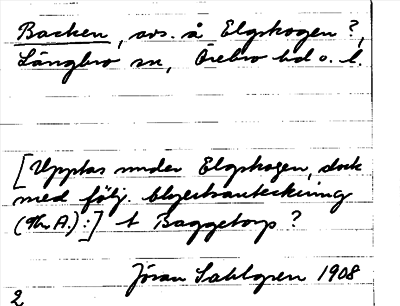 Backen, avs. å Elgskogen?,
Längbro sn, Örebro hd o. l.
[Upptas under Elgskogen, dock
med följ. blyertsanteckning
(Thr A.):] t Baggetorp?
Jöran Sahlgren 1908
2